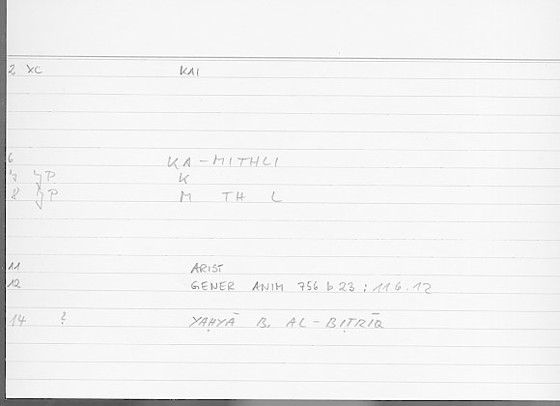 2 XC KAI
6 KA-MITHLI
7 JP K
8 JP M TH L
11 ARIST
12 GENER ANIM 756 b 23 : 116.12
14 ? YAḤYĀ B. AL-BIṬRĪQ